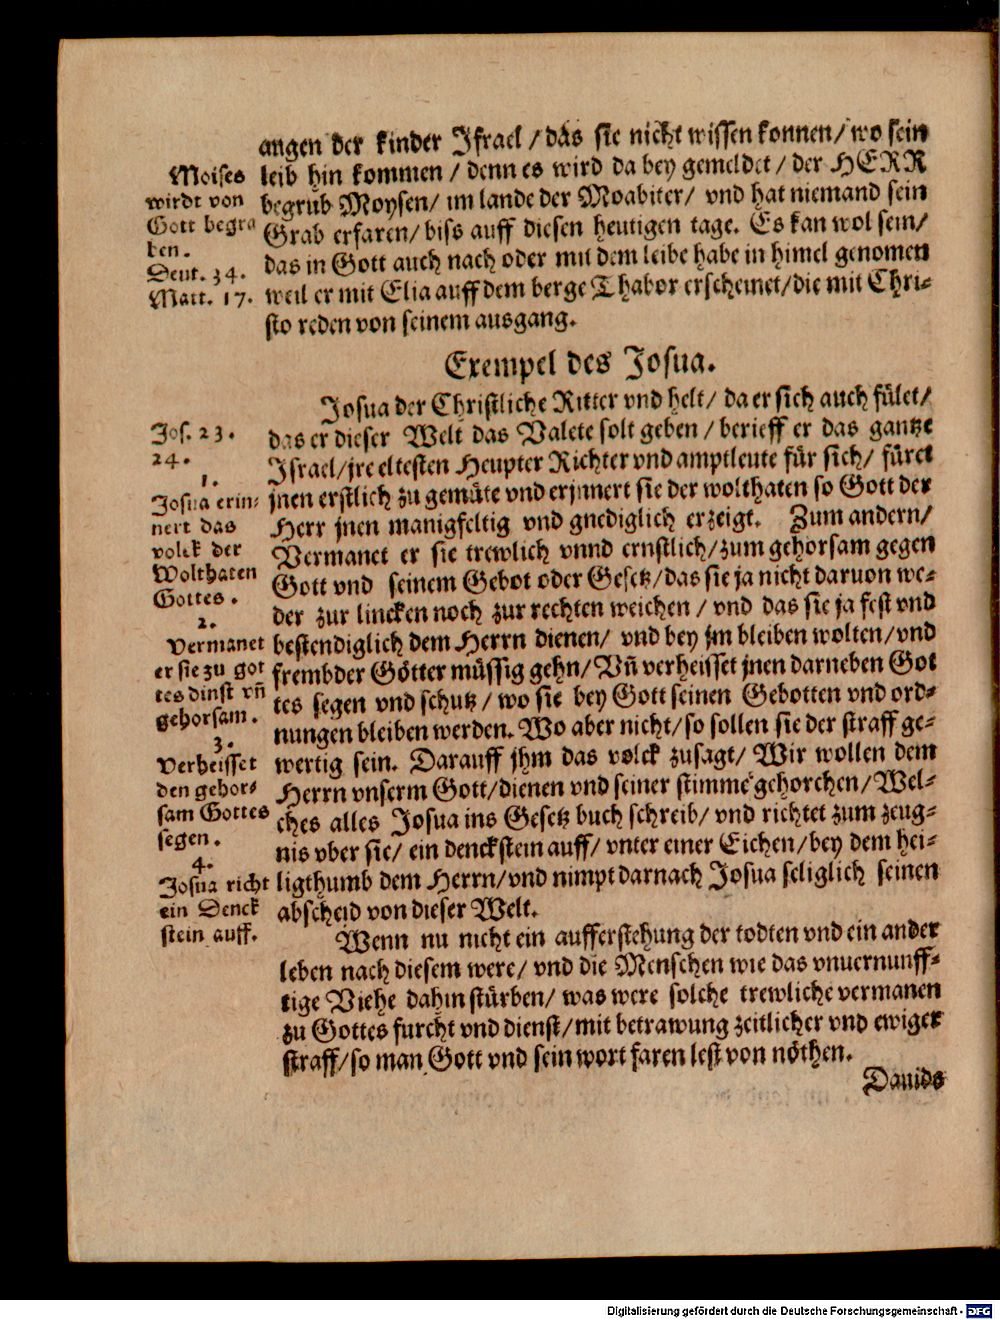 angen der kinder Israel / das sie nicht wissen konnen / wo sein
leib hin kommen / denn es wird da bey gemeldet / der HERR
begrub Moysen / im lande der Moabiter / vnd hat niemand sein
Grab erfaren / biss auff diesen heutigen tage. Es kan wol sein /
das in Gott auch nach oder mit dem leibe habe in himel genomen
weil er mit Elia auff dem berge Thabor erscheinet / die mit Chri-
sto reden von seinem ausgang.
Moises
wirdt von
Gott begra
ben.
Deut. 34.
Matt. 17.
Exempel des Josua.
Josua der Christliche Ritter vnd helt / da er sich auch fület /
das er dieser Welt das Valete solt geben / berieff er das gantze
Israel / jre eltesten Heupter Richter vnd amptleute für sich / füret
jnen erstlich zu gemüte vnd erjnnert sie der wolthaten so Gott der
Herr jnen manigfeltig vnd gnediglich erzeigt. Zum andern /
Vermanet er sie trewlich vnnd ernstlich / zum gehorsam gegen
Gott vnd seinem Gebot oder Gesetz / das sie ja nicht daruon we-
der zur lincken noch zur rechten weichen / vnd das sie ja fest vnd
bestendiglich dem Herrn dienen / vnd bey jm bleiben wolten / vnd
frembder Götter müssig gehn / Vñ verheisset jnen darneben Got
tes segen vnd schutz / wo sie bey Gott seinen Gebotten vnd ord-
nungen bleiben werden. Wo aber nicht / so sollen sie der straff ge-
wertig sein. Darauff jhm das volck zusagt / Wir wollen dem
Herrn vnserm Gott / dienen vnd seiner stimme gehorchen / Wel-
ches alles Josua ins Gesetz buch schreib / vnd richtet zum zeug-
nis vber sie / ein denckstein auff / vnter einer Eichen / bey dem hei-
ligthumb dem Herrn / vnd nimpt darnach Josua seliglich seinen
abscheid von dieser Welt.
Jos. 23.
24.
1.
Josua erin-
nert das
volck der
Wolthaten
Gottes.
2.
Vermanet
er sie zu got
tes dinst vñ
gehorsam.
3.
Verheisset
den gehor-
sam Gottes
segen.
4.
Josua richt
ein Denck
stein auff.
Wenn nu nicht ein aufferstehung der todten vnd ein ander
leben nach diesem were / vnd die Menschen wie das vnuernunff-
tige Viehe dahin stürben / was were solche trewliche vermanen
zu Gottes furcht vnd dienst / mit betrawung zeitlicher vnd ewiger
straff / so man Gott vnd sein wort faren lest von nöthen.
Dauids
Digitalisierung gefördert durch die Deutsche Forschungsgemeinschaft - DFG